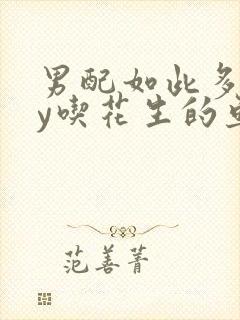 男配如此多
y喫花生的
范善菁